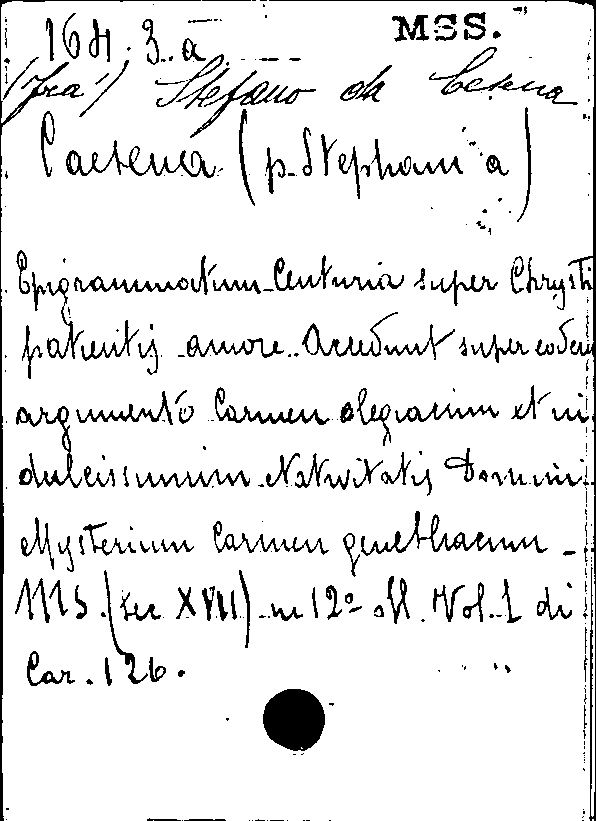 164. 3. a
MSS.
(Fra') Stefano da Cesena
Caesena (p. Stephani a)
Epigrammatum Centuria super Chrysti
patientis amore. Accedunt super eodem
argumento Carmen elegiacum et in
dulcissimum Nativitatis Domini
Mysterium Carmen genethliacum -
MS. (sec XVII) in 12º Vol. 1 di
Car. 126.